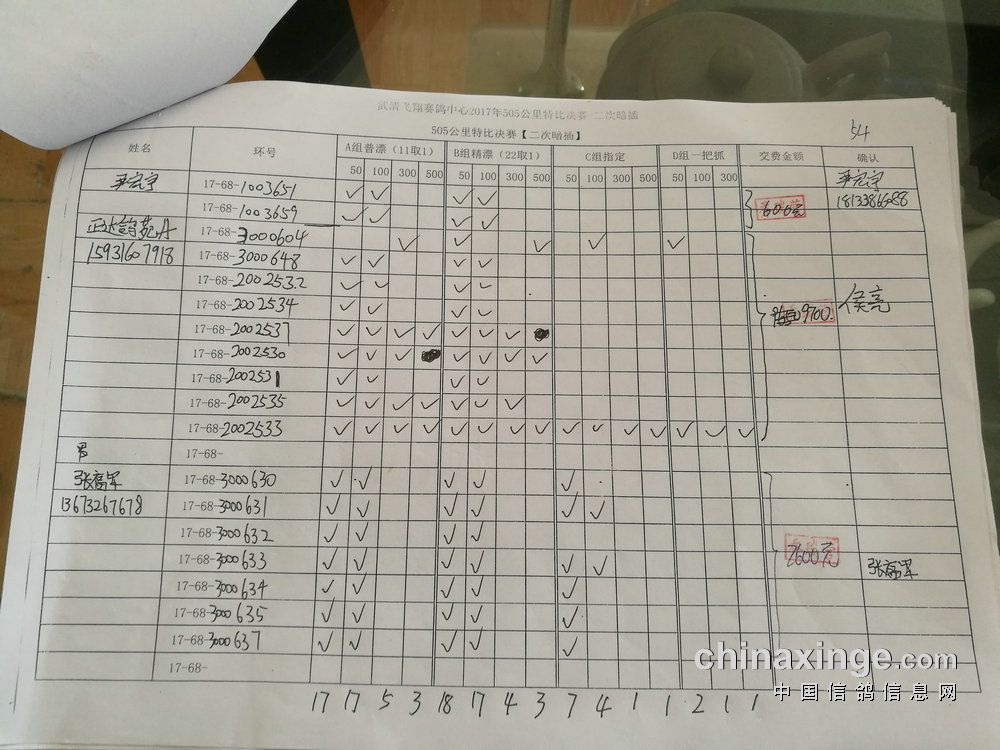 武清飞翔赛鸽中心2017年505公里特比决赛 二次暗插
54
505公里特比决赛【二次暗插】
姓名 环号 A组普漂（11取1） B组精漂（22取1） C组指定 D组一把抓 交费金额 确认
50 100 300 500 50 100 300 500 50 100 300 500 50 100 300
17-68-1003651 ✓ ✓ ✓ ✓
17-68-1003659 ✓ ✓ ✓ ✓ 600元 18133866088
正达鸽苑A 17-68-3000604 ✓ ✓ ✓ ✓ ✓
15931607918 17-68-3000648 ✓ ✓ ✓ ✓
17-68-2002532 ✓ ✓ ✓ ✓
17-68-2002534 ✓ ✓ ✓ ✓ 9700. 侯亮
17-68-2002537 ✓ ✓ ✓ ✓ ✓ ✓ ✓
17-68-2002530 ✓ ✓ ✓ ✓ ✓ ✓ ✓
17-68-2002531 ✓ ✓ ✓ ✓
17-68-2002535 ✓ ✓ ✓ ✓ ✓ ✓ ✓
17-68-2002533 ✓ ✓ ✓ ✓ ✓ ✓ ✓ ✓ ✓ ✓ ✓ ✓ ✓ ✓ ✓
17-68-
张富军 17-68-3000630 ✓ ✓ ✓ ✓ ✓
13673267678 17-68-3000631 ✓ ✓ ✓ ✓ ✓ ✓
17-68-3000632 ✓ ✓ ✓ ✓
17-68-3000633 ✓ ✓ ✓ ✓ ✓ ✓ 2600元 张富军
17-68-3000634 ✓ ✓ ✓ ✓ ✓
17-68-3000635 ✓ ✓ ✓ ✓ ✓
17-68-3000637 ✓ ✓ ✓ ✓ ✓
17-68-
17 17 5 3 18 17 4 3 7 4 1 1 2 1 1
chinaxinge.com
中国信鸽信息网